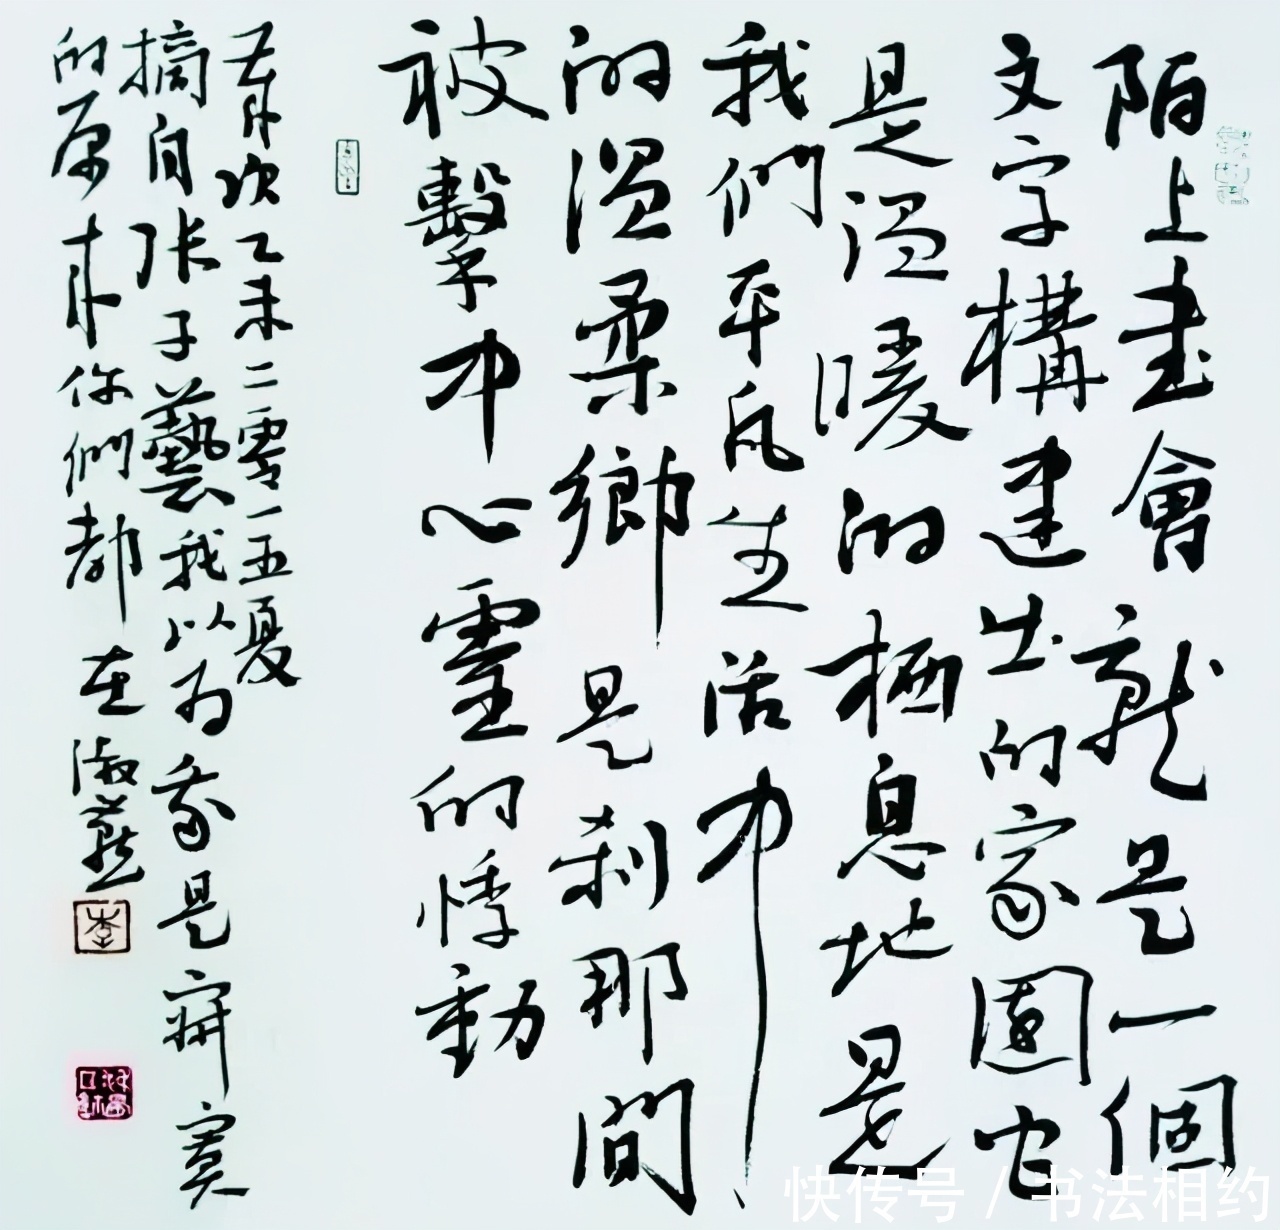 陌上书會就是一個
文字構建出的家園它
是温暖的栖息地是
我們平凡生活中
的温柔鄉是刹那間
被擊中心靈的悸动
歲次乙未二零一五夏
摘自张子藝我以为我是寂寞
的原来你們都在淑燕
李
快传号 / 书法相约